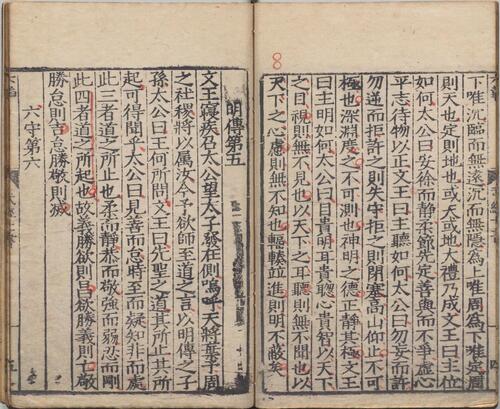 下唯沉臨而無遠沉而無隠為上唯周為下唯定周
則天也定則地也或天或地大禮乃成文王曰主位
如何太公曰安徐而靜柔節先定善與而不爭虛心
平志待物以正文王曰主聽如何太公曰勿妄而許
勿逆而拒許之則失守拒之則閉塞高山仰止不可
極也深淵度之不可測也神明之德正静其極文王
曰主明如何太公曰目貴明耳貴聰心貴智以天下
之目視則無不見也以天下之耳聽則無不聞也以
天下之心慮則無不知也輻輳並進則明不蔽矣
8
明傳第五
文王寢疾召太公望太子發在側嗚呼天將棄予周
之社稷將以属汝今予欲師至道之言以明傳之子
孫太公曰王何所問文王曰先聖之道其所止其所
起可得聞乎太公曰見善而怠時至而疑知非而處
此三者道之所止也柔而静恭而敬強而弱忍而剛
此四者道之所起也故義勝欲則昌欲勝義則亡敬
勝怠則吉怠勝敬則滅
六守第六